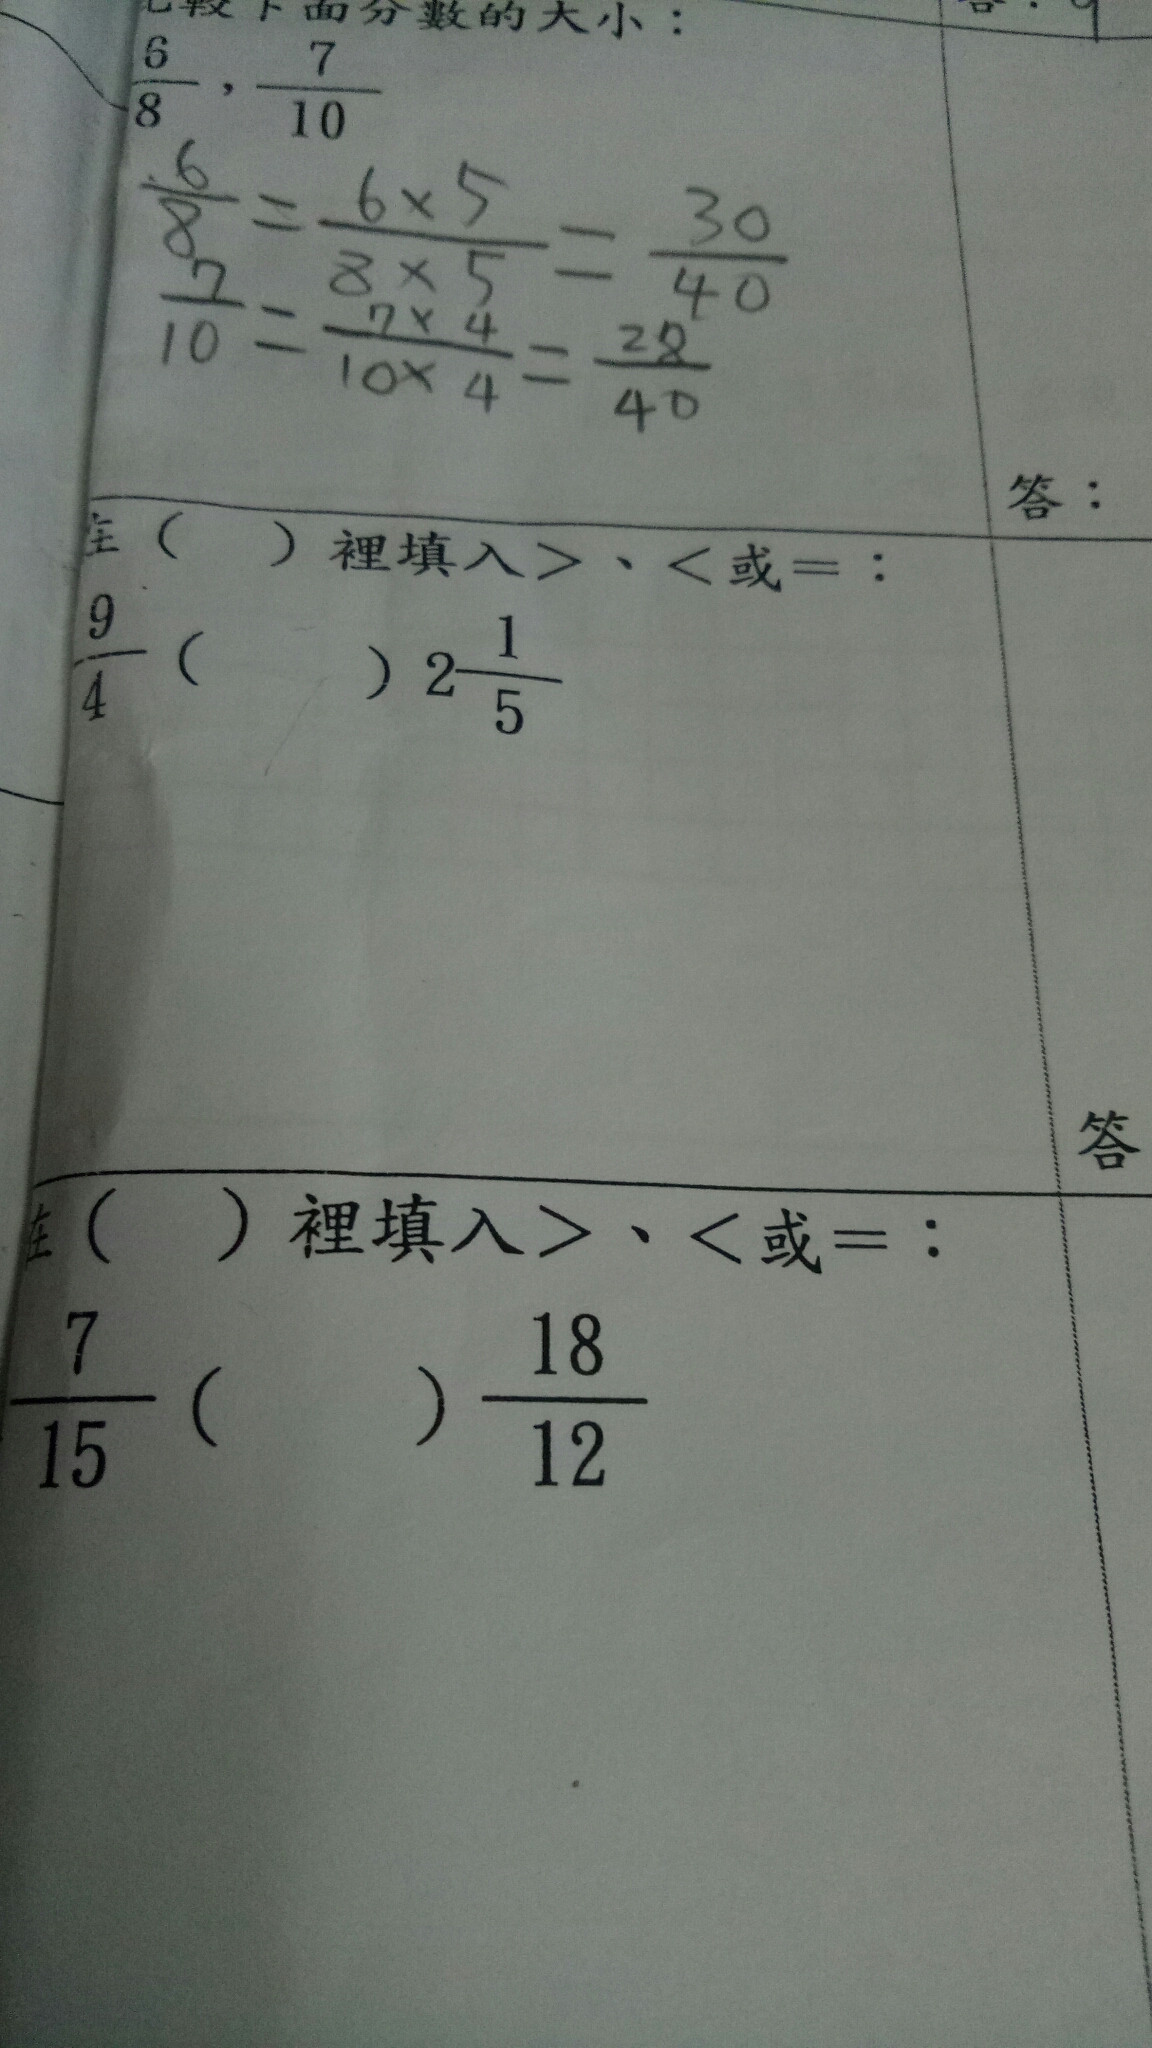 比較下面分數的大小：
答：9
6/8 , 7/10
6/8 = 6×5/8×5 = 30/40
7/10 = 7×4/10×4 = 28/40
答：
在（ ）裡填入＞、＜或＝：
9/4（ ）2 1/5
答
在（ ）裡填入＞、＜或＝：
7/15（ ）18/12